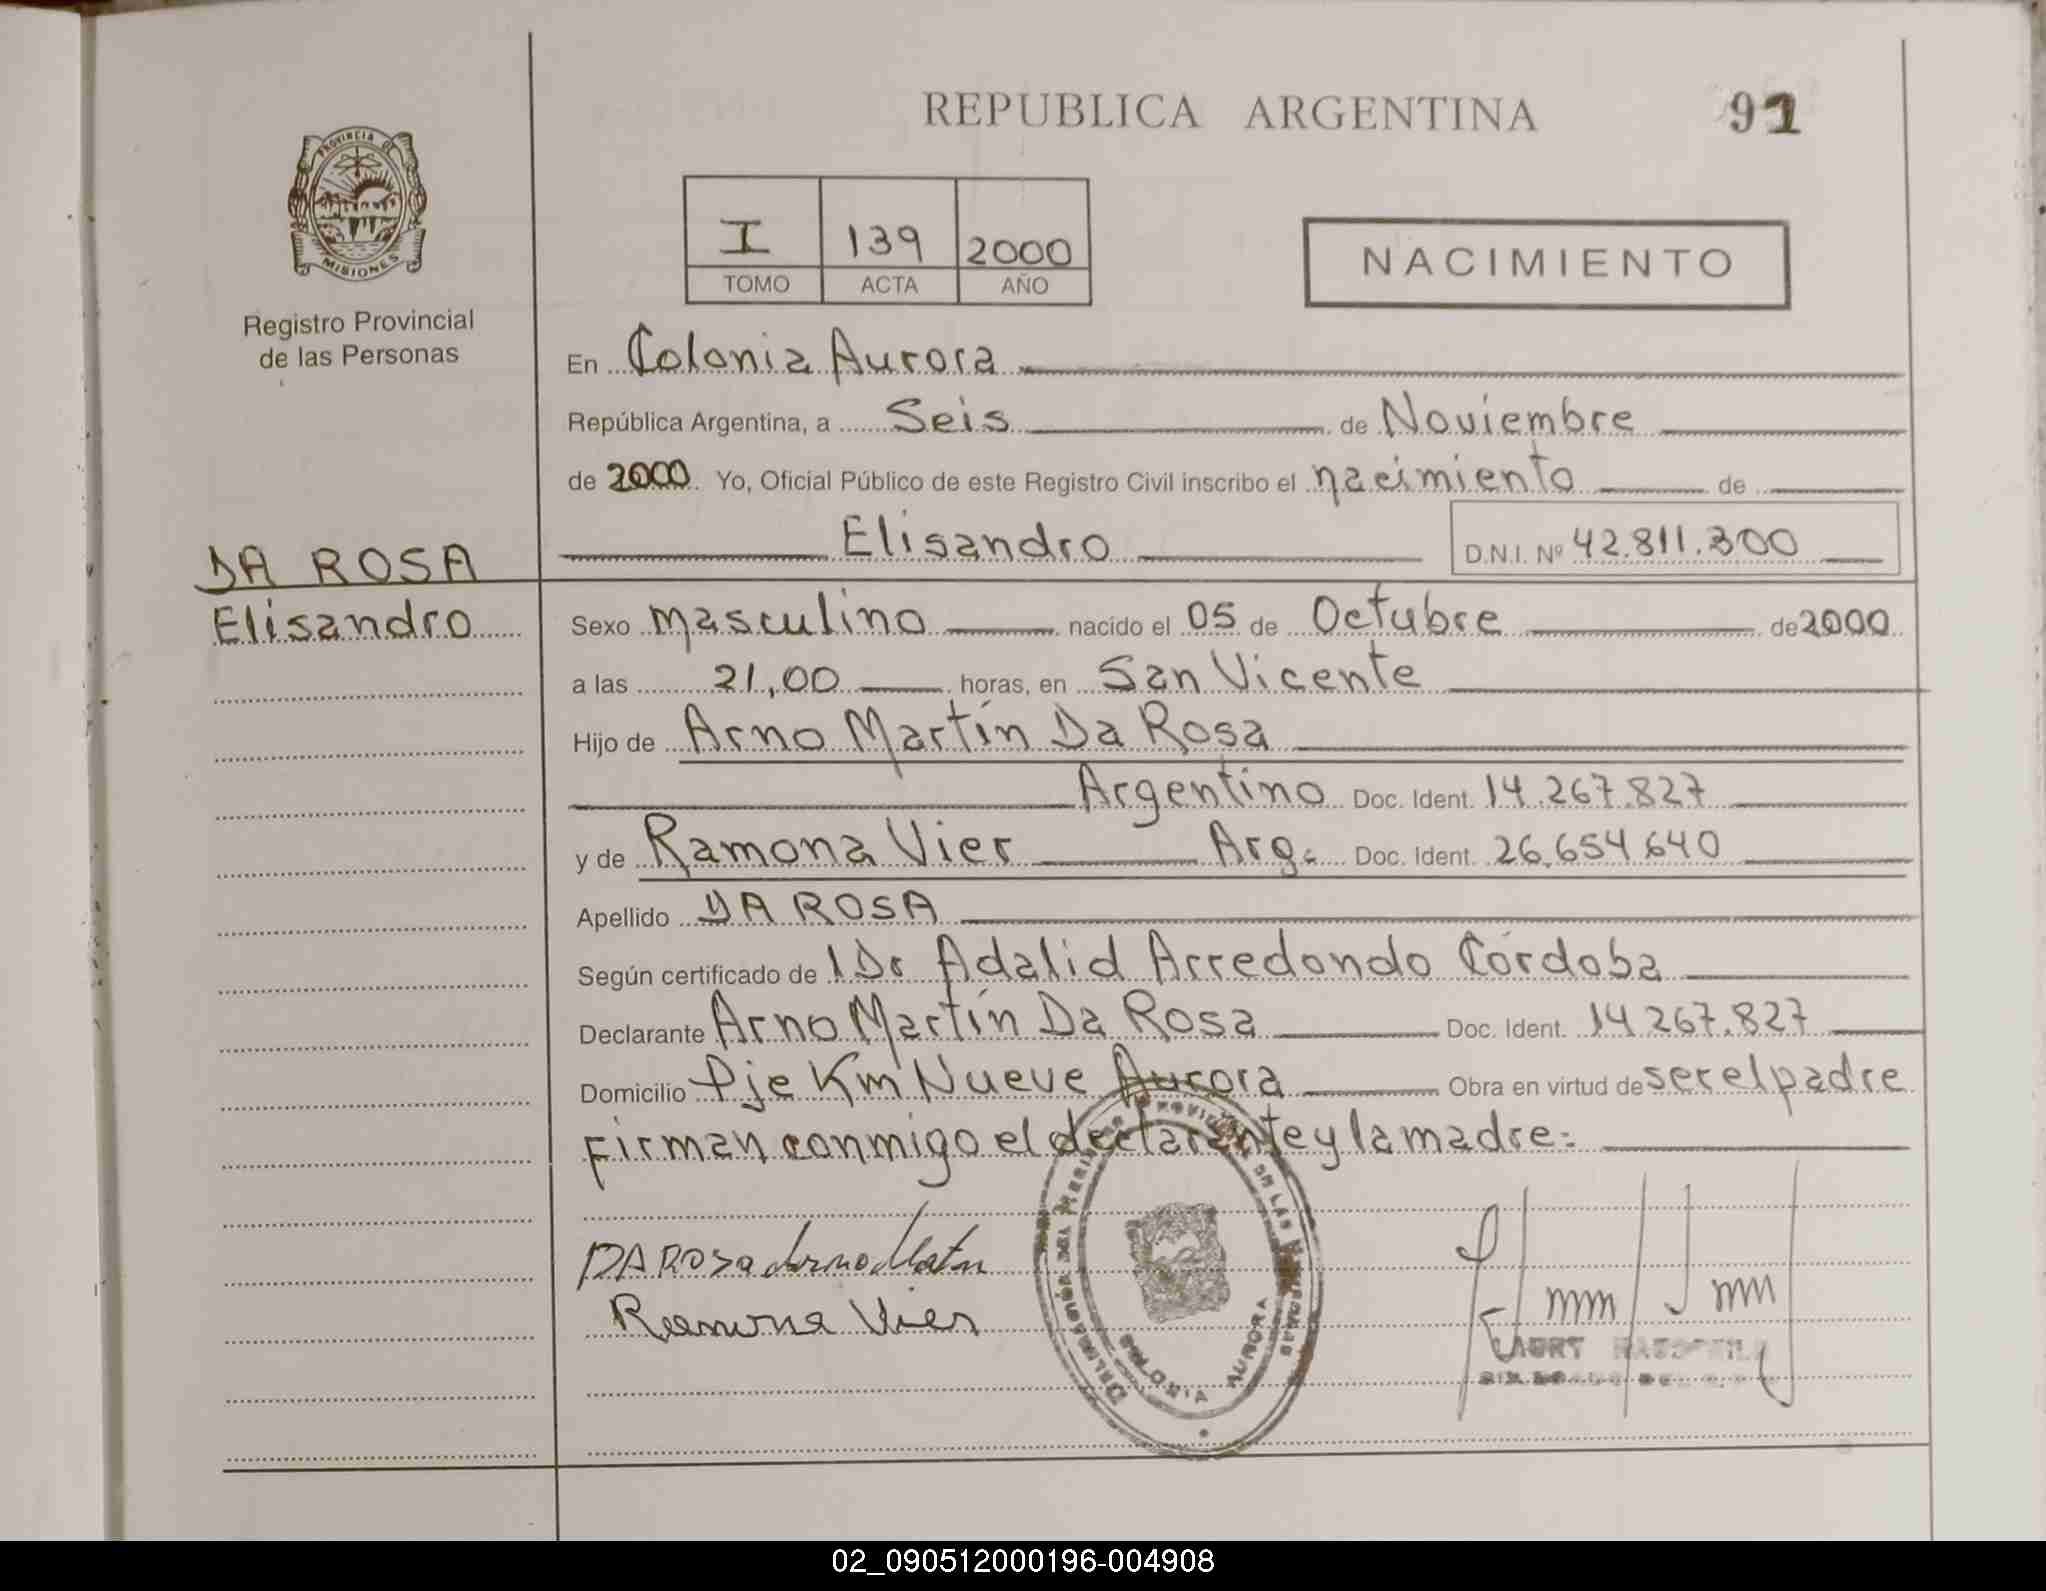 REPUBLICA ARGENTINA
91
PROVINCIA DE
MISIONES
Registro Provincial
de las Personas
I 139 2000
TOMO ACTA AÑO
NACIMIENTO
En Colonia Aurora
República Argentina, a Seis de Noviembre
de 2000 Yo, Oficial Público de este Registro Civil inscribo el nacimiento de
Elisandro D.N.I. Nº 42.811.300
DA ROSA
Elisandro
Sexo masculino nacido el 05 de Octubre de 2000
a las 21,00 horas, en San Vicente
Hijo de Arno Martín Da Rosa
Argentino Doc. Ident. 14.267.827
y de Ramona Vier Arg. Doc. Ident. 26.654.640
Apellido DA ROSA
Según certificado de Dr Adalid Arredondo Córdoba
Declarante Arno Martín Da Rosa Doc. Ident. 14 267.827
Domicilio Pje Km Nueve Aurora Obra en virtud de ser el padre
Firman conmigo el declarante y la madre:
DA ROSA Arno Matn
Ramona Vier
COLONIA AURORA
02_090512000196-004908